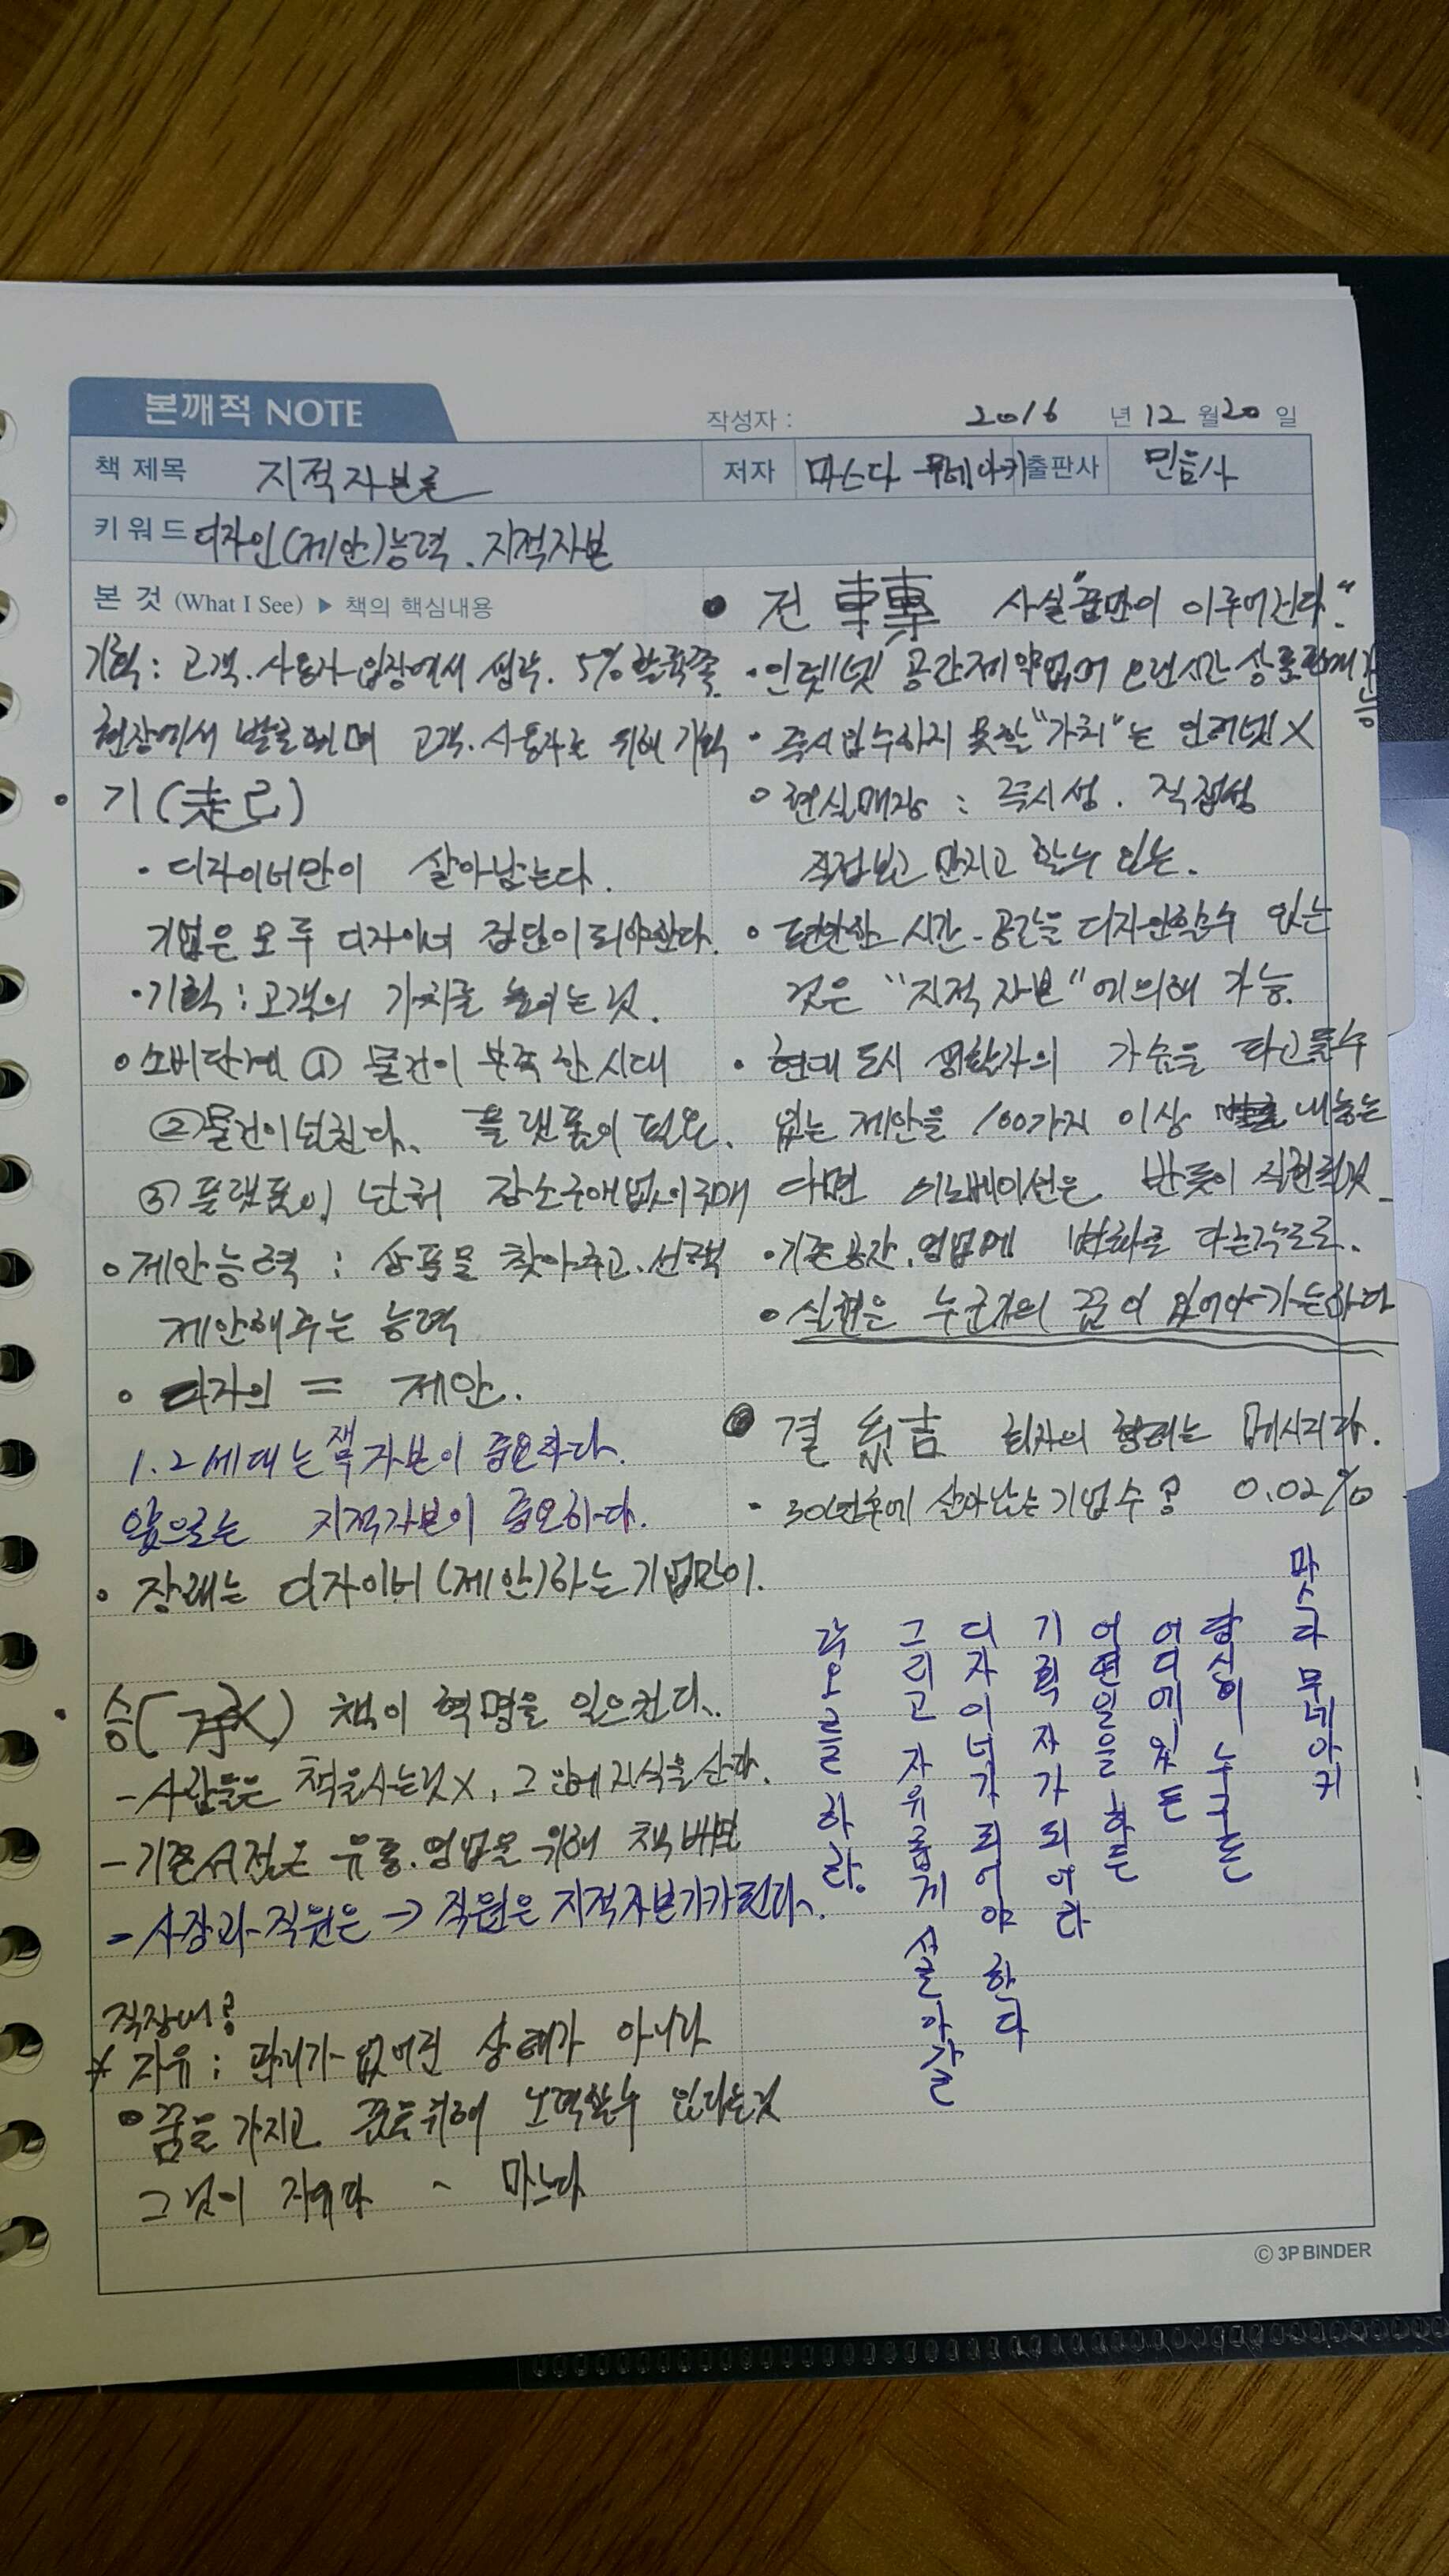 본깨적 NOTE
작성자 : 2016 년 12 월 20 일
책 제목 지적자본론 저자 마스다 무네아키 출판사 민음사
키워드 디자인(제안)능력. 지적자본
본 것 (What I See) ▶ 책의 핵심내용
기획 : 고객.사용자 입장에서 생각. 5%
현장에서 발로뛰며 고객.사용자를 위해 기획
• 기(起)
• 디자이너만이 살아남는다.
기업은 모두 디자이너 집단이 되야한다.
• 기획 : 고객의 가치를 높이는것.
• 소비단계 ① 물건이 부족한 시대
② 물건이 넘친다. 플랫폼이 필요.
③ 플랫폼이 넘쳐 장소구애없이 구매
• 제안능력 : 상품을 찾아주고.선택
제안해주는 능력
• 디자인 = 제안.
1.2세대는 책 자본이 중요하다.
앞으로는 지적자본이 중요하다.
• 장래는 디자이너(제안)하는 기업만이.
• 승(承) 책이 혁명을 일으킨다.
- 사람들은 책을사는것X, 그 안에 지식을 산다.
- 기존서점은 유통.영업을 위해 책 배포
- 사장과 직원은 → 직원은 지적자본가가된다.
직장내?
* 자유 : 관리가 없어진 상태가 아니라
• 꿈을 가지고 꿈을위해 노력할수 있다는것
그것이 자유다 - 마스다
• 전 轉 사실 "꿈만이 이루어진다."
• 인터넷 공간제약없어 오랜시간 상품판매 가능
• 즉시입수하지 못할 "가치"는 인터넷 X
• 현실매장 : 즉시성. 직접성
직접보고 만지고 할수 있는.
• 편안한 시간.공간을 디자인할수 있는
것은 "지적자본"에의해 가능.
• 현대 도시 생활자의 가슴을 파고들수
없는 제안을 100가지 이상 내놓는
다면 이노베이션은 반듯이 실현될것
• 기존 공간.영업에 변화를 다른각도로.
• 실현은 누군가의 꿈이 있어야 가능하다
• 결 結 회사의 형태는 메시지다.
• 30년후에 살아남는 기업수? 0.02%
마스다 무네아키
당신이 누구든
어디에 있든
어떤일을 하든
기획자가 되어라
디자이너가 되어야 한다
그리고 자유롭게 살아갈
각오를 하라.
© 3P BINDER